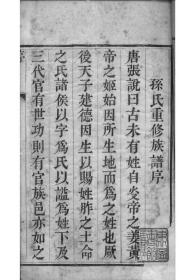 孫氏重修族譜序
唐張說曰古未有姓自炎帝之姜黃
帝之姬始因所生地而爲之姓也厥
後天子建德因生以賜姓胙之土命
之氏諸侯以字爲氏以諡爲姓下及
三代官有世功則有官族邑亦如之